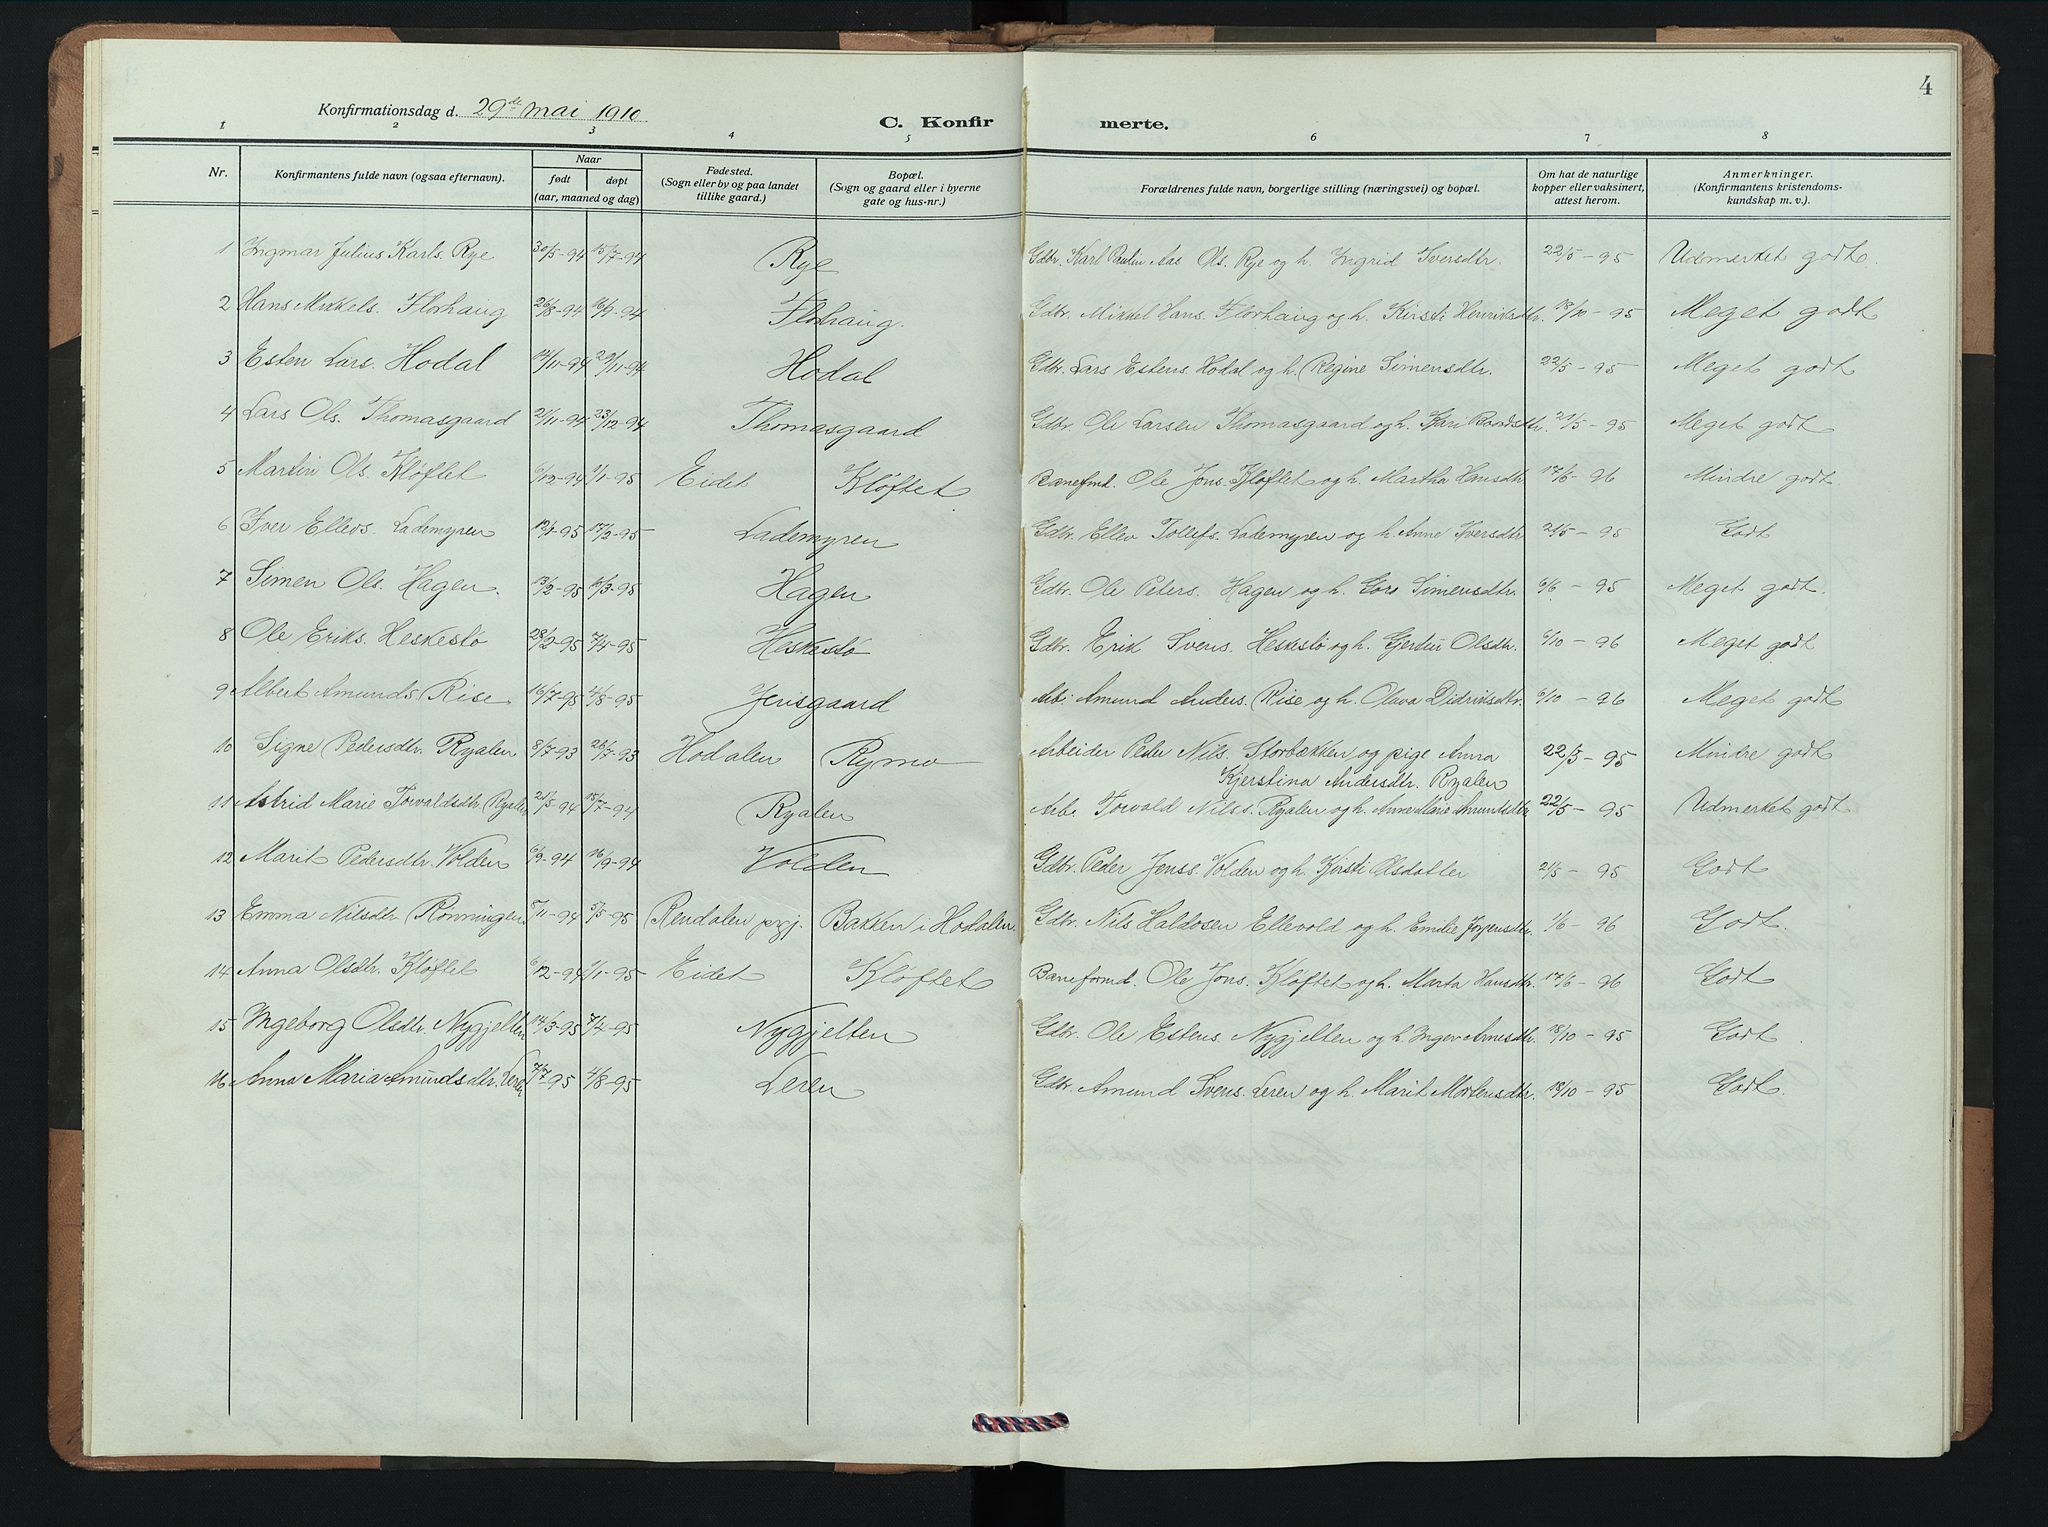 4
Konfirmationsdag d. 29de mai 1910
C. Konfirmerte.
1 2 3 4 5 6 7 8
Nr. Konfirmantens fulde navn (ogsaa efternavn). Naar født døpt (aar, maaned og dag) Fødested. (Sogn eller by og paa landet tillike gaard.) Bopæl. (Sogn og gaard eller i byerne gate og hus-nr.) Forældrenes fulde navn, borgerlige stilling (næringsvei) og bopæl. Om hat de naturlige kopper eller vaksinert, attest herom. Anmerkninger. (Konfirmantens kristendomskundskap m. v.).
1 Ingmar Julius Karls. Rye 30/5-94 15/7-94 Rye Gdbr. Karl Paulin Aas Ols. Rye og h. Ingrid Iversdtr. 22/5-95 Udmerket godt.
2 Hans Mikkels. Florhaug 26/8-94 16/9-94 Florhaug. Gdbr. Mikkel Hans. Florhaug og h. Kirsti Henriksdtr. 18/10-95 Meget godt
3 Esten Lars. Hodal 12/11-94 29/11-94 Hodal Gdbr. Lars Estens. Hodal og h. Regine Simensdtr. 22/5-95 Meget godt
4 Lars Ols. Thomasgaard 2/11-94 23/12-94 Thomasgaard Gdbr. Ole Larsen Thomasgaard og h. Kari Baardsdtr. 21/5-95 Meget godt
5 Martin Ols. Kløftet 6/12-94 1/1-95 Eidet Kløftet Banefmd. Ole Jons. Kløftet og h. Martha Hansdtr 17/6-96 Mindre godt.
6 Iver Ellevs. Lademyren 12/1-95 17/2-95 Lademyren Gdbr. Ellev Tollefs. Lademyren og h. Anne Iversdtr 21/5-95 Godt
7 Simen Ols. Hagen. 13/2-95 10/3-95 Hagen Gdbr. Ole Peters. Hagen og h. Goro Simensdtr. 6/6-95 Meget godt.
8 Ole Eriks. Heskestø 28/2-95 7/4-95 Heskestø Gdbr. Erik Svens. Heskestø og h. Gjertru Olsdtr. 6/10-96 Meget godt
9 Albert Amunds. Rise. 16/7-95 4/8-95 Jensgaard Arb. Amund Anders. Rise og h. Olava Didriksdtr. 6/10-96 Meget godt
10 Signe Pedersdtr. Ryalen 8/7-93 26/7-93 Hodalen Rymo Arbeider Peder Nils. Storbækken og pige Anna 22/5-95 Mindre godt
Kjerstina Andersdtr. Ryalen
11 Astrid Marie Torvaldsdtr. Ryalen 21/5-94 15/7-94 Ryalen Arb. Torvald Nilss. Ryalen og h. Anne Marie Amundsdtr 22/5-95 Udmerket godt
12 Marit Pedersdtr. Volden 6/9-94 16/9-94 Volden Gdbr. Peder Jenss. Volden og h. Kjersti Olsdatter 21/5-95 Godt
13 Emma Nilsdtr. Rønningen 5/11-94 5/5-95 Rendalen prgj. Bakken i Hodalen. Gdbr. Nils Haldosen Ellevold og h. Emilie Jørgensdtr. 1/6-96 Godt.
14 Anna Olsdtr. Kløftet 6/12-94 1/1-95 Eidet Kløftet Baneformd. Ole Jons. Kløftet og h. Marta Hansdtr. 17/6-96 Godt
15 Ingeborg Olsdtr. Nygjelten 14/3-95 7/4-95 Nygjelten Gdbr. Ole Estens. Nygjelten og h. Ingev Arnesdtr. 18/10-95 Godt
16 Anna Maria Amundsdtr. Leren 7/7-95 4/8-95 Leren Gdbr. Amund Svens. Leren og h. Marit Mortensdtr. 18/10-95 Godt.